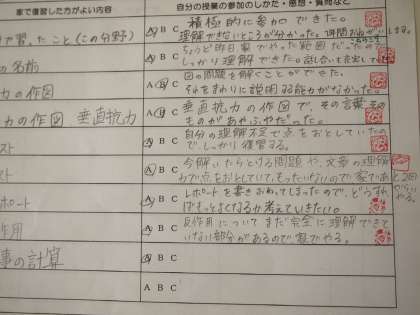 家で復習した方がよい内容
自分の授業の参加のしかた・感想・質問など
で習ったこと(この分野)
A B C
積極的に参加できた。
理解できないところが分かった。1年間おねがいします。
の名前
A B C
ちょうど昨日家でやった範囲だったので
しっかり理解できた。
力の作図
A B C
図の問題を解くことができた。
それをまわりに説明する能力がなかった。
力の作図 垂直抗力
A B C
垂直抗力の作図で、その言葉そのものがあやふやだった。
スト
A B C
自分の理解不足で点をおとしていたの
で、しっかり復習する。
スト
A B C
今解いたらとける問題や、文章の理解
で点をおとしていて、もったいないので家であと2回やる。
ポート
A B C
レポートを書きおわってしまったので、どうすれ
ばもっとよくなるか考えていきたい。
作用
A B C
反作用についてまだ完全に理解できて
いない部分があるので家でやる。
事の計算
A B C
A B C